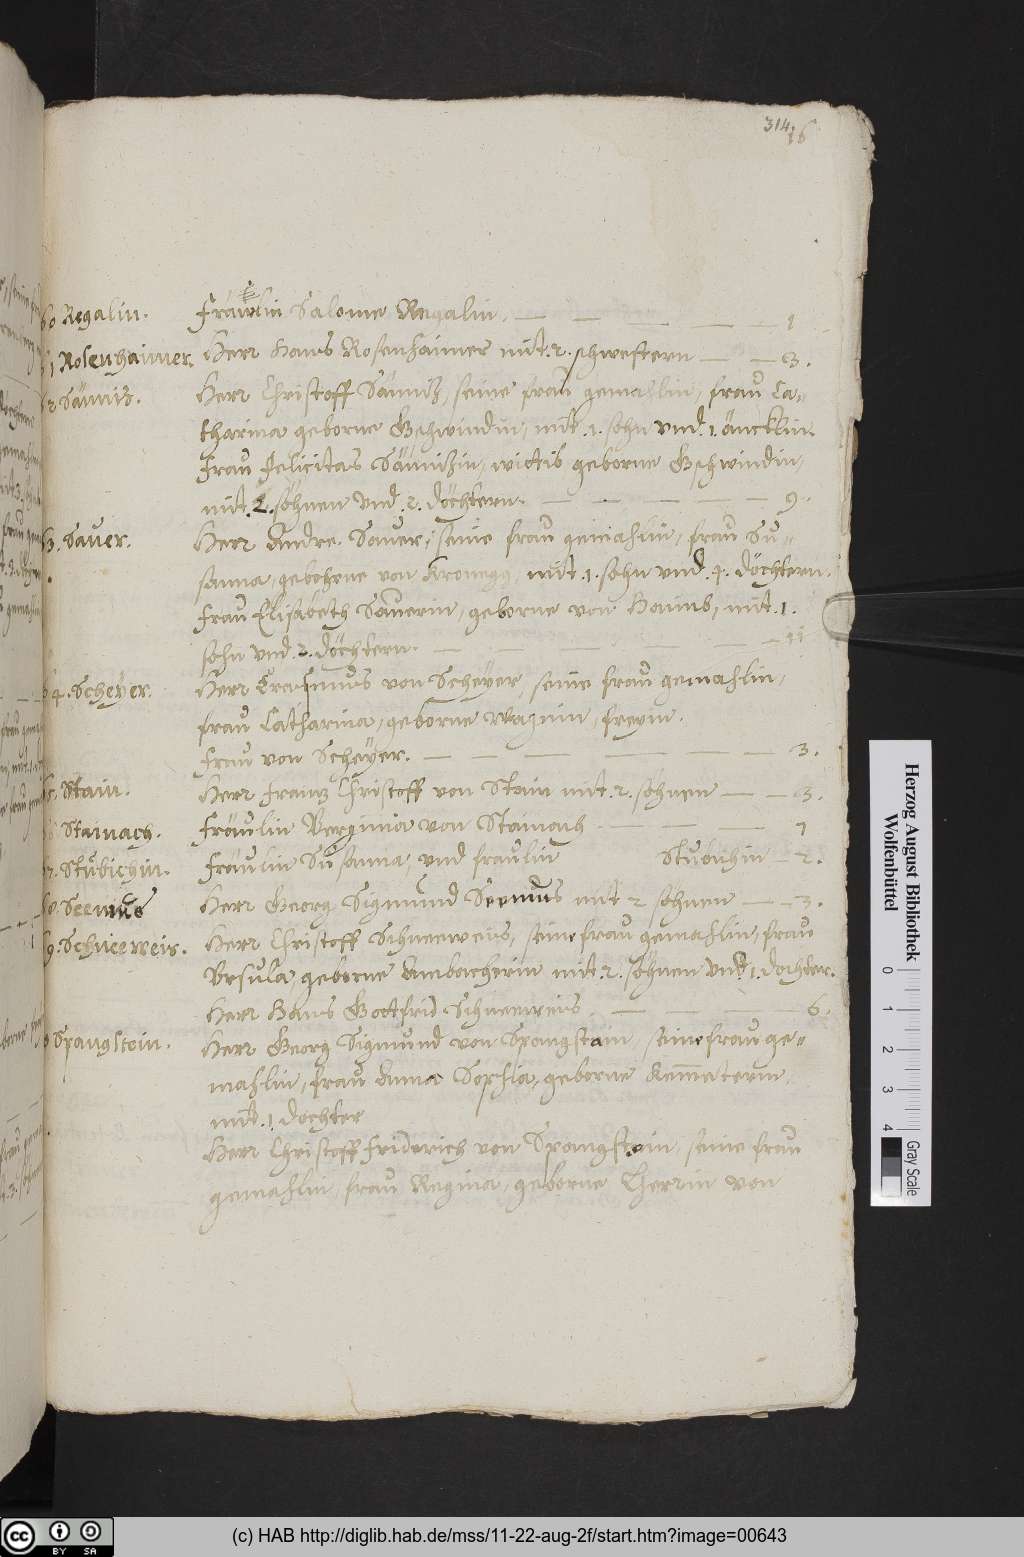 314
16
60 Regalin. Fräwlin Salome Regalin. — — — — — 1
61 Rosenhaimer. Herr Hans Rosenhaimer mit .2. schwestern — — 3.
62 Säunis. Herr Christoff Säuniz, seine frau gemahlin, frau Ca-
tharina geborne Gschwindin, mit .1. sohn vnd .1. äncklin.
Frau Felicitas Säunizin, wittib geborne Gschwindin,
mit .2. söhnen vnd .2. döchtern. — — — — — 9.
63. Sauer. Herr Andre Sauer, seine frau gemahlin, frau Su-
sanna, gebohrne von Kronegg, mit .1. sohn vnd .4. döchtern.
Frau Elisabeth Sauerin, geborne von Haimb, mit .1.
sohn vnd .2. döchtern. — — — — — 11
64. Scheÿer. Herr Erasmus von Scheÿer, seine frau gemahlin,
frau Catharina, geborne Wagnin, freyin.
frau von Scheÿer. — — — — — — 3.
65. Stain. Herr Frantz Christoff von Stain mit .2. söhnen — — 3.
66 Stainach. Fräulin Verginia von Stainach — — — 1
67. Stubichin. Fräulin Susanna, vnd fraulin Stubichin — 2.
68 Seenius Herr Georg Sigmund Seenus mit 2 söhnen — — 3.
69. Schneeweis. Herr Christoff Schneeweis, seine frau gemahlin, frau
Vrsula, geborne Ambacherin mit .2. söhnen vnd 1. dochter.
Herr Hans Gottfrid Schneeweis — — — — 6.
Spangstein. Herr Georg Sigmund von Spangstain, seine frau ge-
mahlin, frau Anna Sophia, geborne
mit .1. dochter
Herr Christoff Friderich von Spangstein, seine frau
gemahlin, frau Regina, geborne Herrin von
Herzog August Bibliothek
Wolfenbüttel
0 1 2 3 4
Gray Scale
cc BY SA
(c) HAB http://diglib.hab.de/mss/11-22-aug-2f/start.htm?image=00643